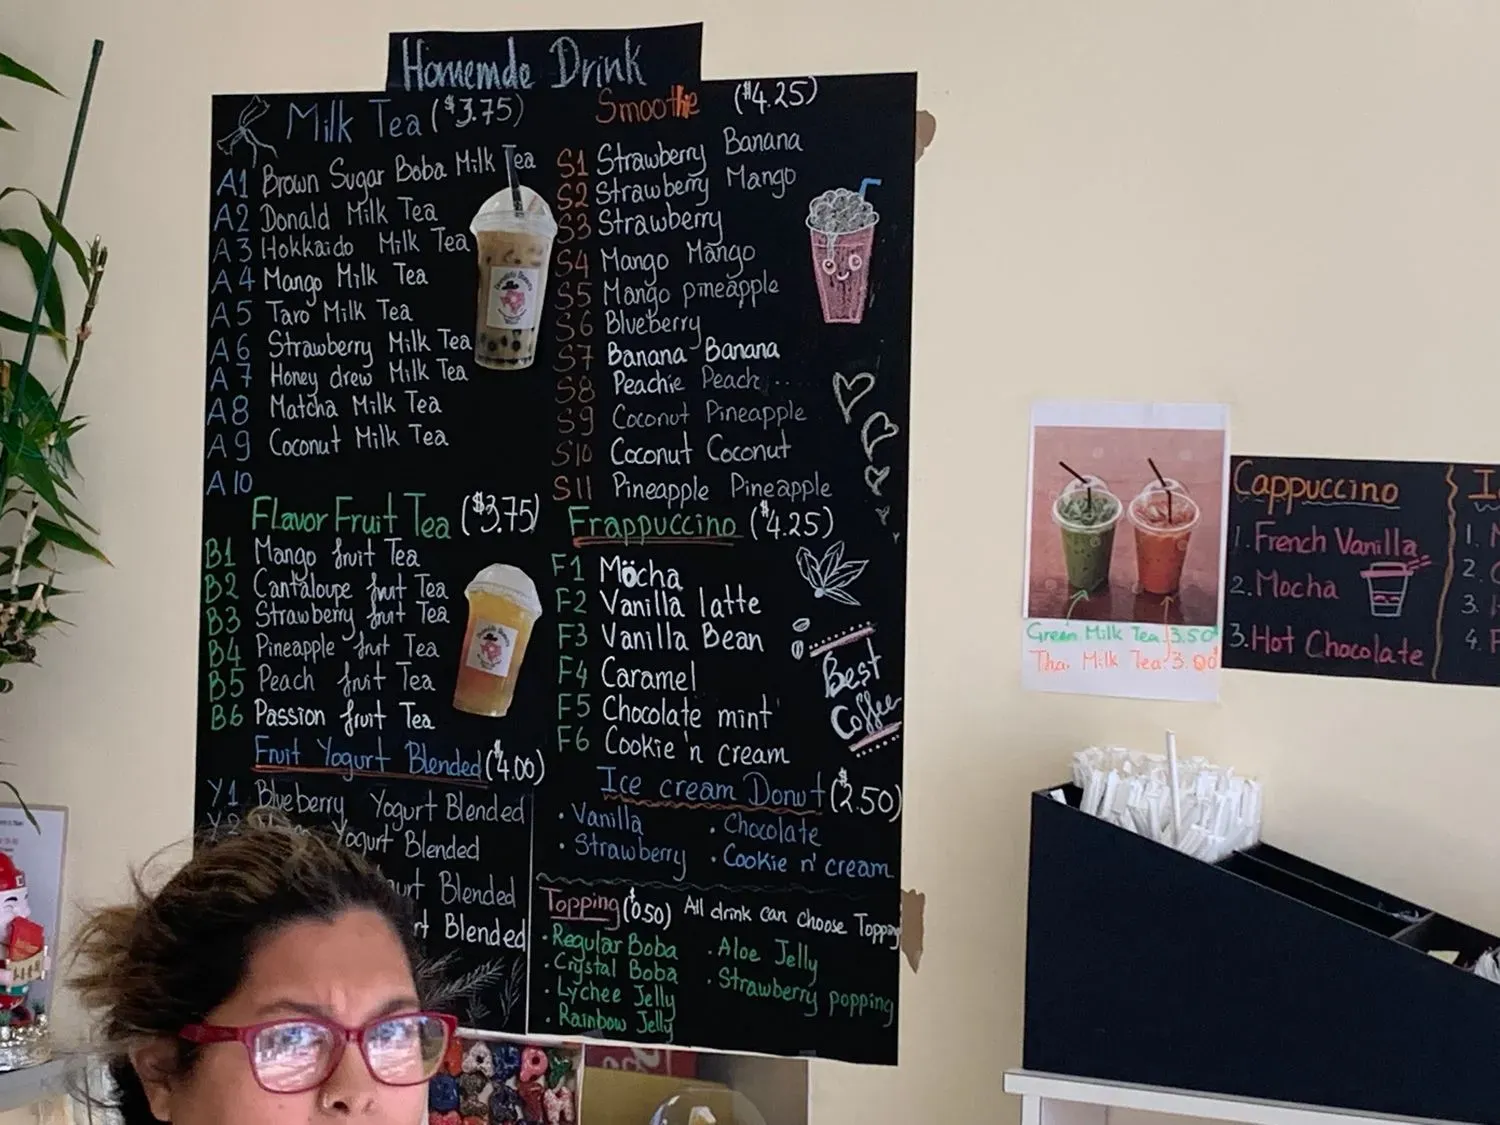 Homemde Drink
Milk Tea ($3.75)
A1 Brown Sugar Boba Milk Tea
A2 Donald Milk Tea
A3 Hokkaido Milk Tea
A4 Mango Milk Tea
A5 Taro Milk Tea
A6 Strawberry Milk Tea
A7 Honey drew Milk Tea
A8 Matcha Milk Tea
A9 Coconut Milk Tea
A10
Flavor Fruit Tea ($3.75)
B1 Mango fruit Tea
B2 Cantaloupe fruit Tea
B3 Strawberry fruit Tea
B4 Pineapple fruit Tea
B5 Peach fruit Tea
B6 Passion fruit Tea
Fruit Yogurt Blended ($4.00)
Y1 Blueberry Yogurt Blended
Y2 Yogurt Blended
Blended
Blended
Smoothie ($4.25)
S1 Strawberry Banana
S2 Strawberry Mango
S3 Strawberry
S4 Mango Mango
S5 Mango pineapple
S6 Blueberry
S7 Banana Banana
S8 Peachie Peach
S9 Coconut Pineapple
S10 Coconut Coconut
S11 Pineapple Pineapple
Frappuccino ($4.25)
F1 Mocha
F2 Vanilla latte
F3 Vanilla Bean
F4 Caramel
F5 Chocolate mint
F6 Cookie 'n cream
Best
Coffee
Ice cream Donut ($2.50)
• Vanilla • Chocolate
• Strawberry • Cookie n' cream
Topping ($0.50) All drink can choose Topping
• Regular Boba • Aloe Jelly
• Crystal Boba • Strawberry popping
• Lychee Jelly
• Rainbow Jelly
Green Milk Tea 3.50
Thai Milk Tea: 3.00
Cappuccino
1. French Vanilla
2. Mocha
3. Hot Chocolate
1.
2.
3.
4.